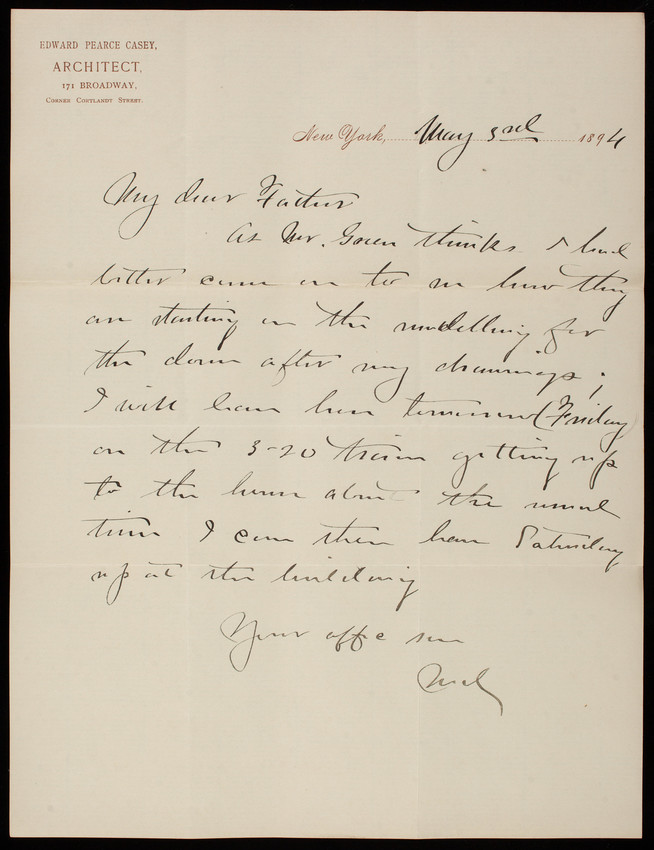 EDWARD PEARCE CASEY,
ARCHITECT,
171 BROADWAY,
CORNER CORTLANDT STREET.
New York, May 3rd 1894
My dear Father
As Mr. Green thinks I had
better come on to see how they
are starting on the modelling for
the dome after my drawings;
I will leave here tomorrow (Friday
on the 3-20 train getting up
to the house about the usual
time I can then have Saturday
up at the building
Your affc son
Ned